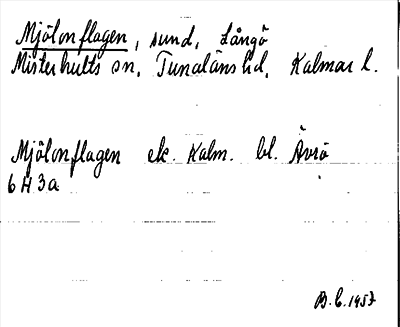 Mjölonflagen, sund, Långö
Misterhults sn, Tunaläns hd, Kalmar l.
Mjölonflagen ek. Kalm. bl. Ävrö
6 H 3a
B.C. 1957